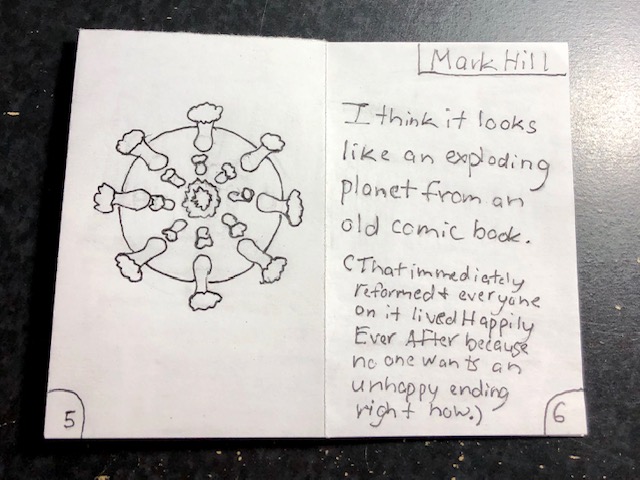 5
Mark Hill
I think it looks
like an exploding
planet from an
old comic book.
(That immediately
reformed & everyone
on it lived Happily
Ever After because
no one wants an
unhappy ending
right now.)
6